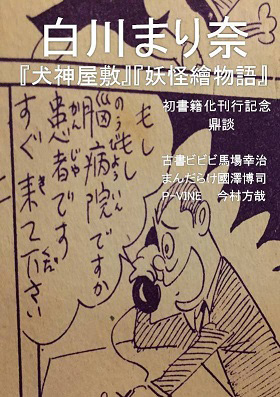 白川まり奈
『犬神屋敷』『妖怪繪物語』
初書籍化刊行記念
鼎談
古書ビビビ馬場幸治
まんだらけ國澤博司
P-VINE 今村方哉
もしもし
脳病院ですか
のうびょういん
患者です
かんじゃ
すぐ来て下さい